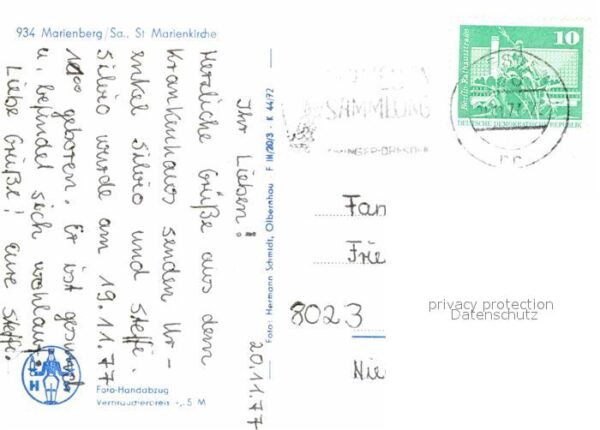 934 Marienberg/Sa., St Marienkirche
20.11.77
Ihr Lieben!
Herzliche Grüße aus dem
Krankenhaus senden Ur-
enkel Silvio und Steffi.
Silvio wurde am 19.11.77
geboren. Er ist gesund
u. befindet sich wohlauf.
Liebe Grüße! eure Steffi.
Foto: Hermann Schmidt, Olbernhau F III/20/3 - K 44/72
H S
Foto-Handabzug
Verbraucherpreis -,5 M
10
Berlin-Rathausstraße
DEUTSCHE DEMOKRATISCHE REPUBLIK
SAMMLUNG
Fam
Frie
8023
Nie
privacy protection
Datenschutz